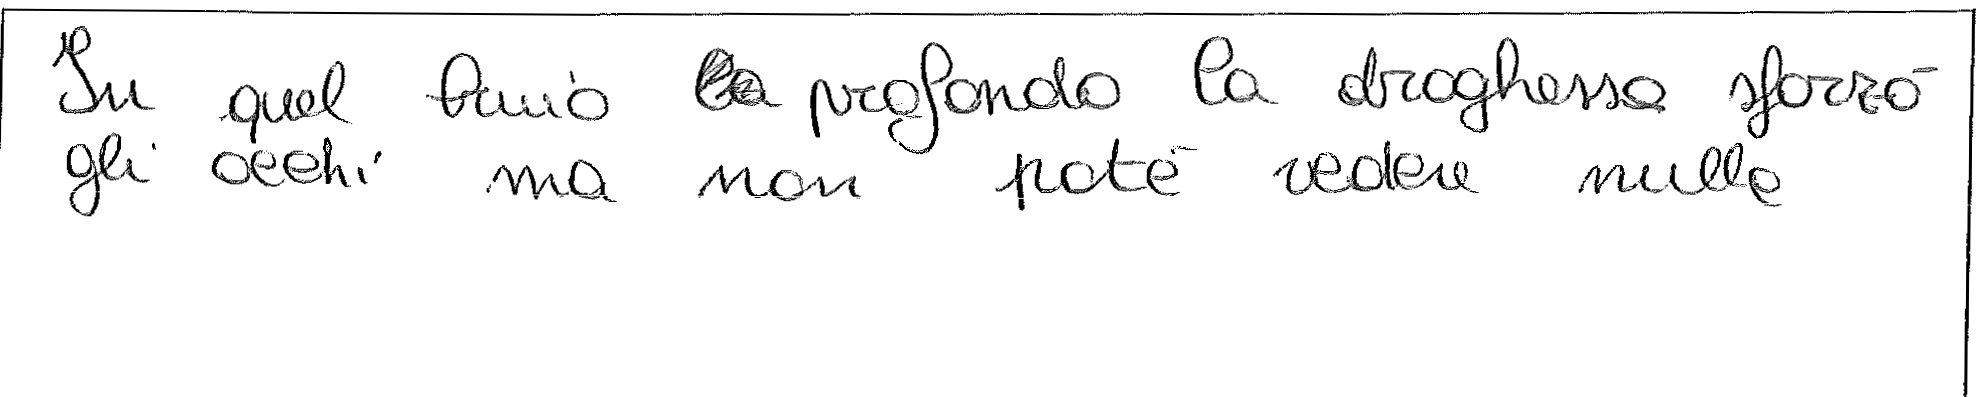 In quel buio profondo la draghessa sforzò
gli occhi ma non poté vedere nulla